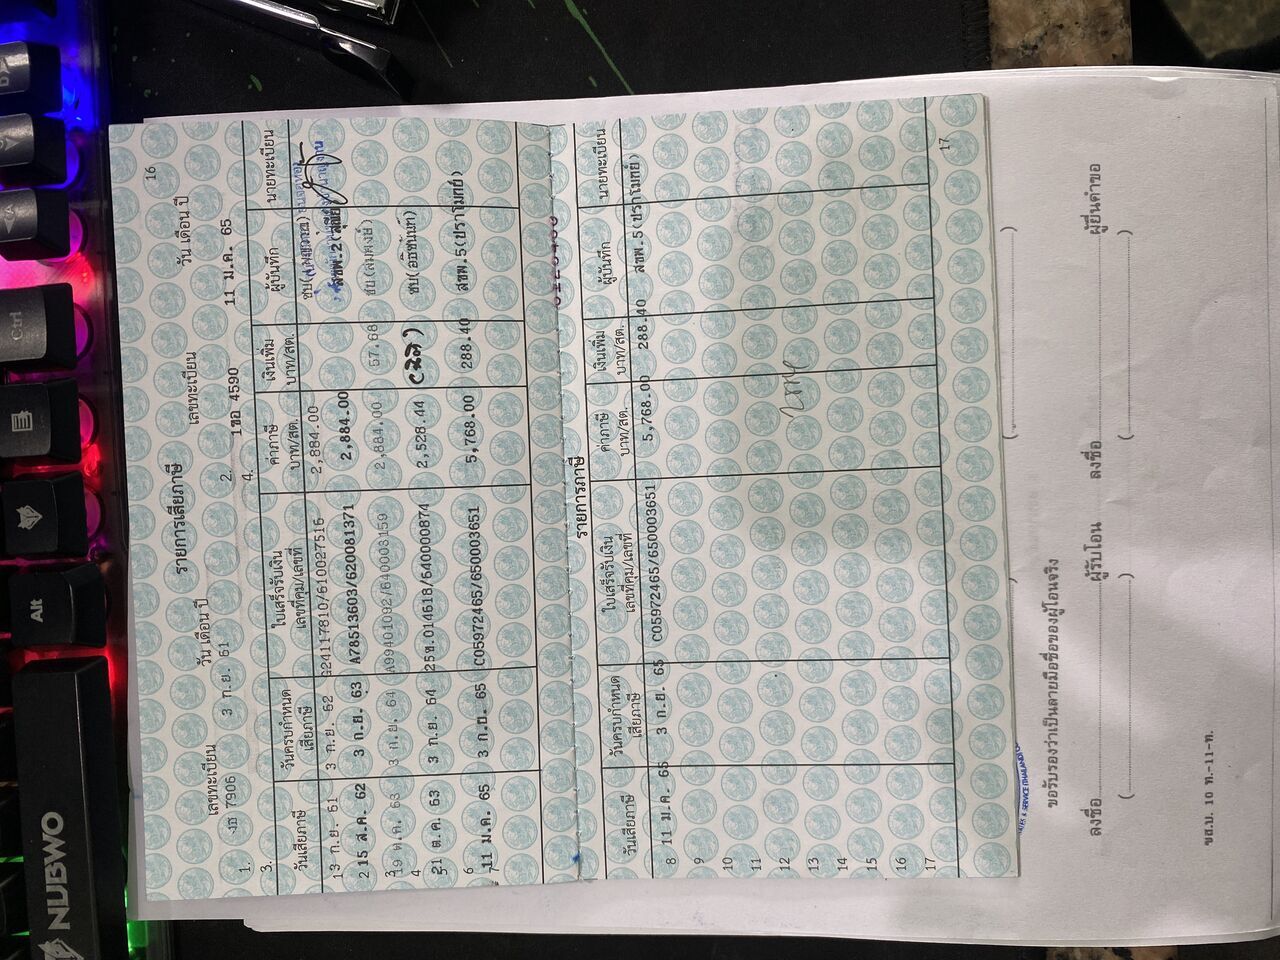 16
รายการเสียภาษี
เลขทะเบียน วัน เดือน ปี เลขทะเบียน วัน เดือน ปี
1. 7906 3 ก.ย. 61 2. 1ขอ 4590 11 ม.ค. 65
3. 4.
วันเสียภาษี วันครบกำหนดเสียภาษี ใบเสร็จรับเงิน เลขที่คุม/เลขที่ ค่าภาษี บาท/สต. เงินเพิ่ม บาท/สต. ผู้บันทึก นายทะเบียน
1 3 ก.ย. 61 3 ก.ย. 62 G24117810/610027516 2,884.00
2 15 ส.ค. 62 3 ก.ย. 63 A78513603/620081371 2,884.00 สขพ.2
3 19 ต.ค. 63 3 ก.ย. 64 A99401092/640008159 2,884.00 57.68 ชบ(สมพงษ์)
4
5 21 ต.ค. 63 3 ก.ย. 64 25ช.014618/640000874 2,528.44
6
7 11 ม.ค. 65 3 ก.ย. 65 C05972465/650003651 5,768.00 288.40 สขพ.5(ปราโมทย์)
รายการภาษี
วันเสียภาษี วันครบกำหนดเสียภาษี ใบเสร็จรับเงิน เลขที่คุม/เลขที่ ค่าภาษี บาท/สต. เงินเพิ่ม บาท/สต. ผู้บันทึก นายทะเบียน
8 11 ม.ค. 65 3 ก.ย. 65 C05972465/650003651 5,768.00 288.40 สขพ.5(ปราโมทย์)
9
10
11
12
13
14
15
16
17
17
ขอรับรองว่าเป็นลายมือชื่อของผู้โอนจริง
ลงชื่อ ผู้รับโอน ลงชื่อ ผู้ยื่นคำขอ
( ) ( )
ขส.บ. 10 ท.-11-ท.
NUBWO
Alt
Ctrl